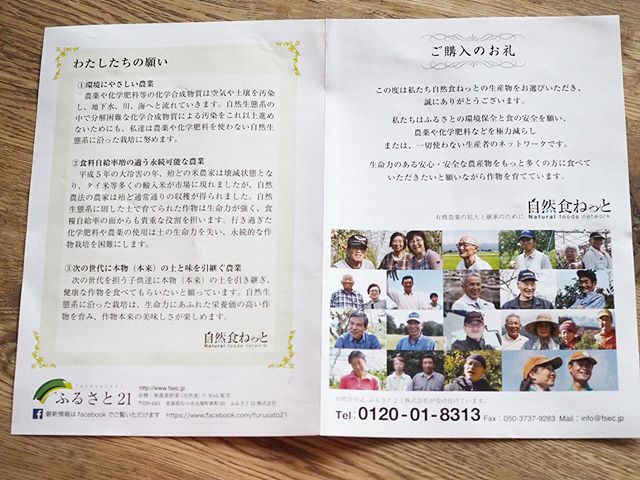 わたしたちの願い
①環境にやさしい農業
農薬や化学肥料等の化学合成物質は空気や土壌を汚染
し、地下水、川、海へと流れていきます。自然生態系の
中で分解困難な化学合成物質による汚染をこれ以上進め
ないためにも、私達は農薬や化学肥料を使わない自然生
態系に沿った栽培に努めます。
②食料自給率増の適う永続可能な農業
平成５年の大冷害の年、殆どの米農家は壊滅状態とな
り、タイ米等多くの輸入米が市場に現れましたが、自然
農法の農家は殆ど通常通りの収穫が得られました。自然
生態系に則した土で育てられた作物は生命力が強く、食
糧自給率の面からも貴重な役割を担います。行き過ぎた
化学肥料や農薬の使用は土の生命力を失い、永続的な作
物栽培を困難にします。
③次の世代に本物（本来）の土と味を引継ぐ農業
次の世代を担う子供達に本物（本来）の土を引き継ぎ、
健康な作物を食べてもらいたいと願っています。自然生
態系に沿った栽培は、生命力にあふれた栄養価の高い作
物を育み、作物本来の美味しさが楽しめます。
自然食ねっと
Natural foods network
ふるさと21
http://www.fsec.jp
有機・無農薬野菜（自然食）の Web 販売
ふるさと21株式会社
最新情報は facebook でご覧いただけます https://www.facebook.com/furusato21
ご購入のお礼
この度は私たち自然食ねっとの生産物をお選びいただき、
誠にありがとうございます。
私たちはふるさとの環境保全と食の安全を願い、
農薬や化学肥料などを極力減らし
または、一切使わない生産者のネットワークです。
生命力のある安心・安全な農産物をもっと多くの方に食べて
いただきたいと願いながら作物を育てています。
有機農業の拡大と継承のために
自然食ねっと
Natural foods network
お問合せは、ふるさと２１株式会社が受け付けています。
Tel：0120-01-8313 Fax：050-3737-9283 Mail：info@fsec.jp